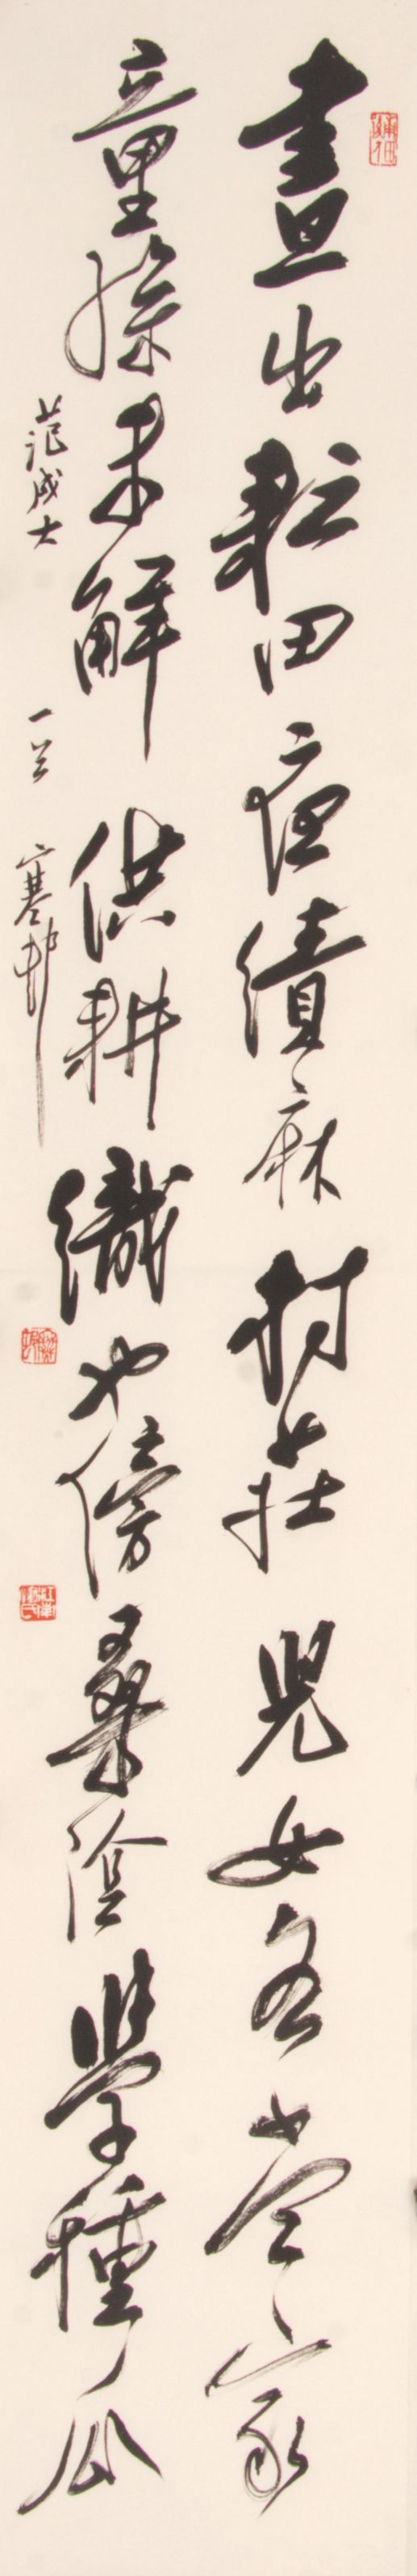 晝出耘田夜績麻村莊兒女各當家
童孫未解供耕織也傍桑陰學種瓜
范成大